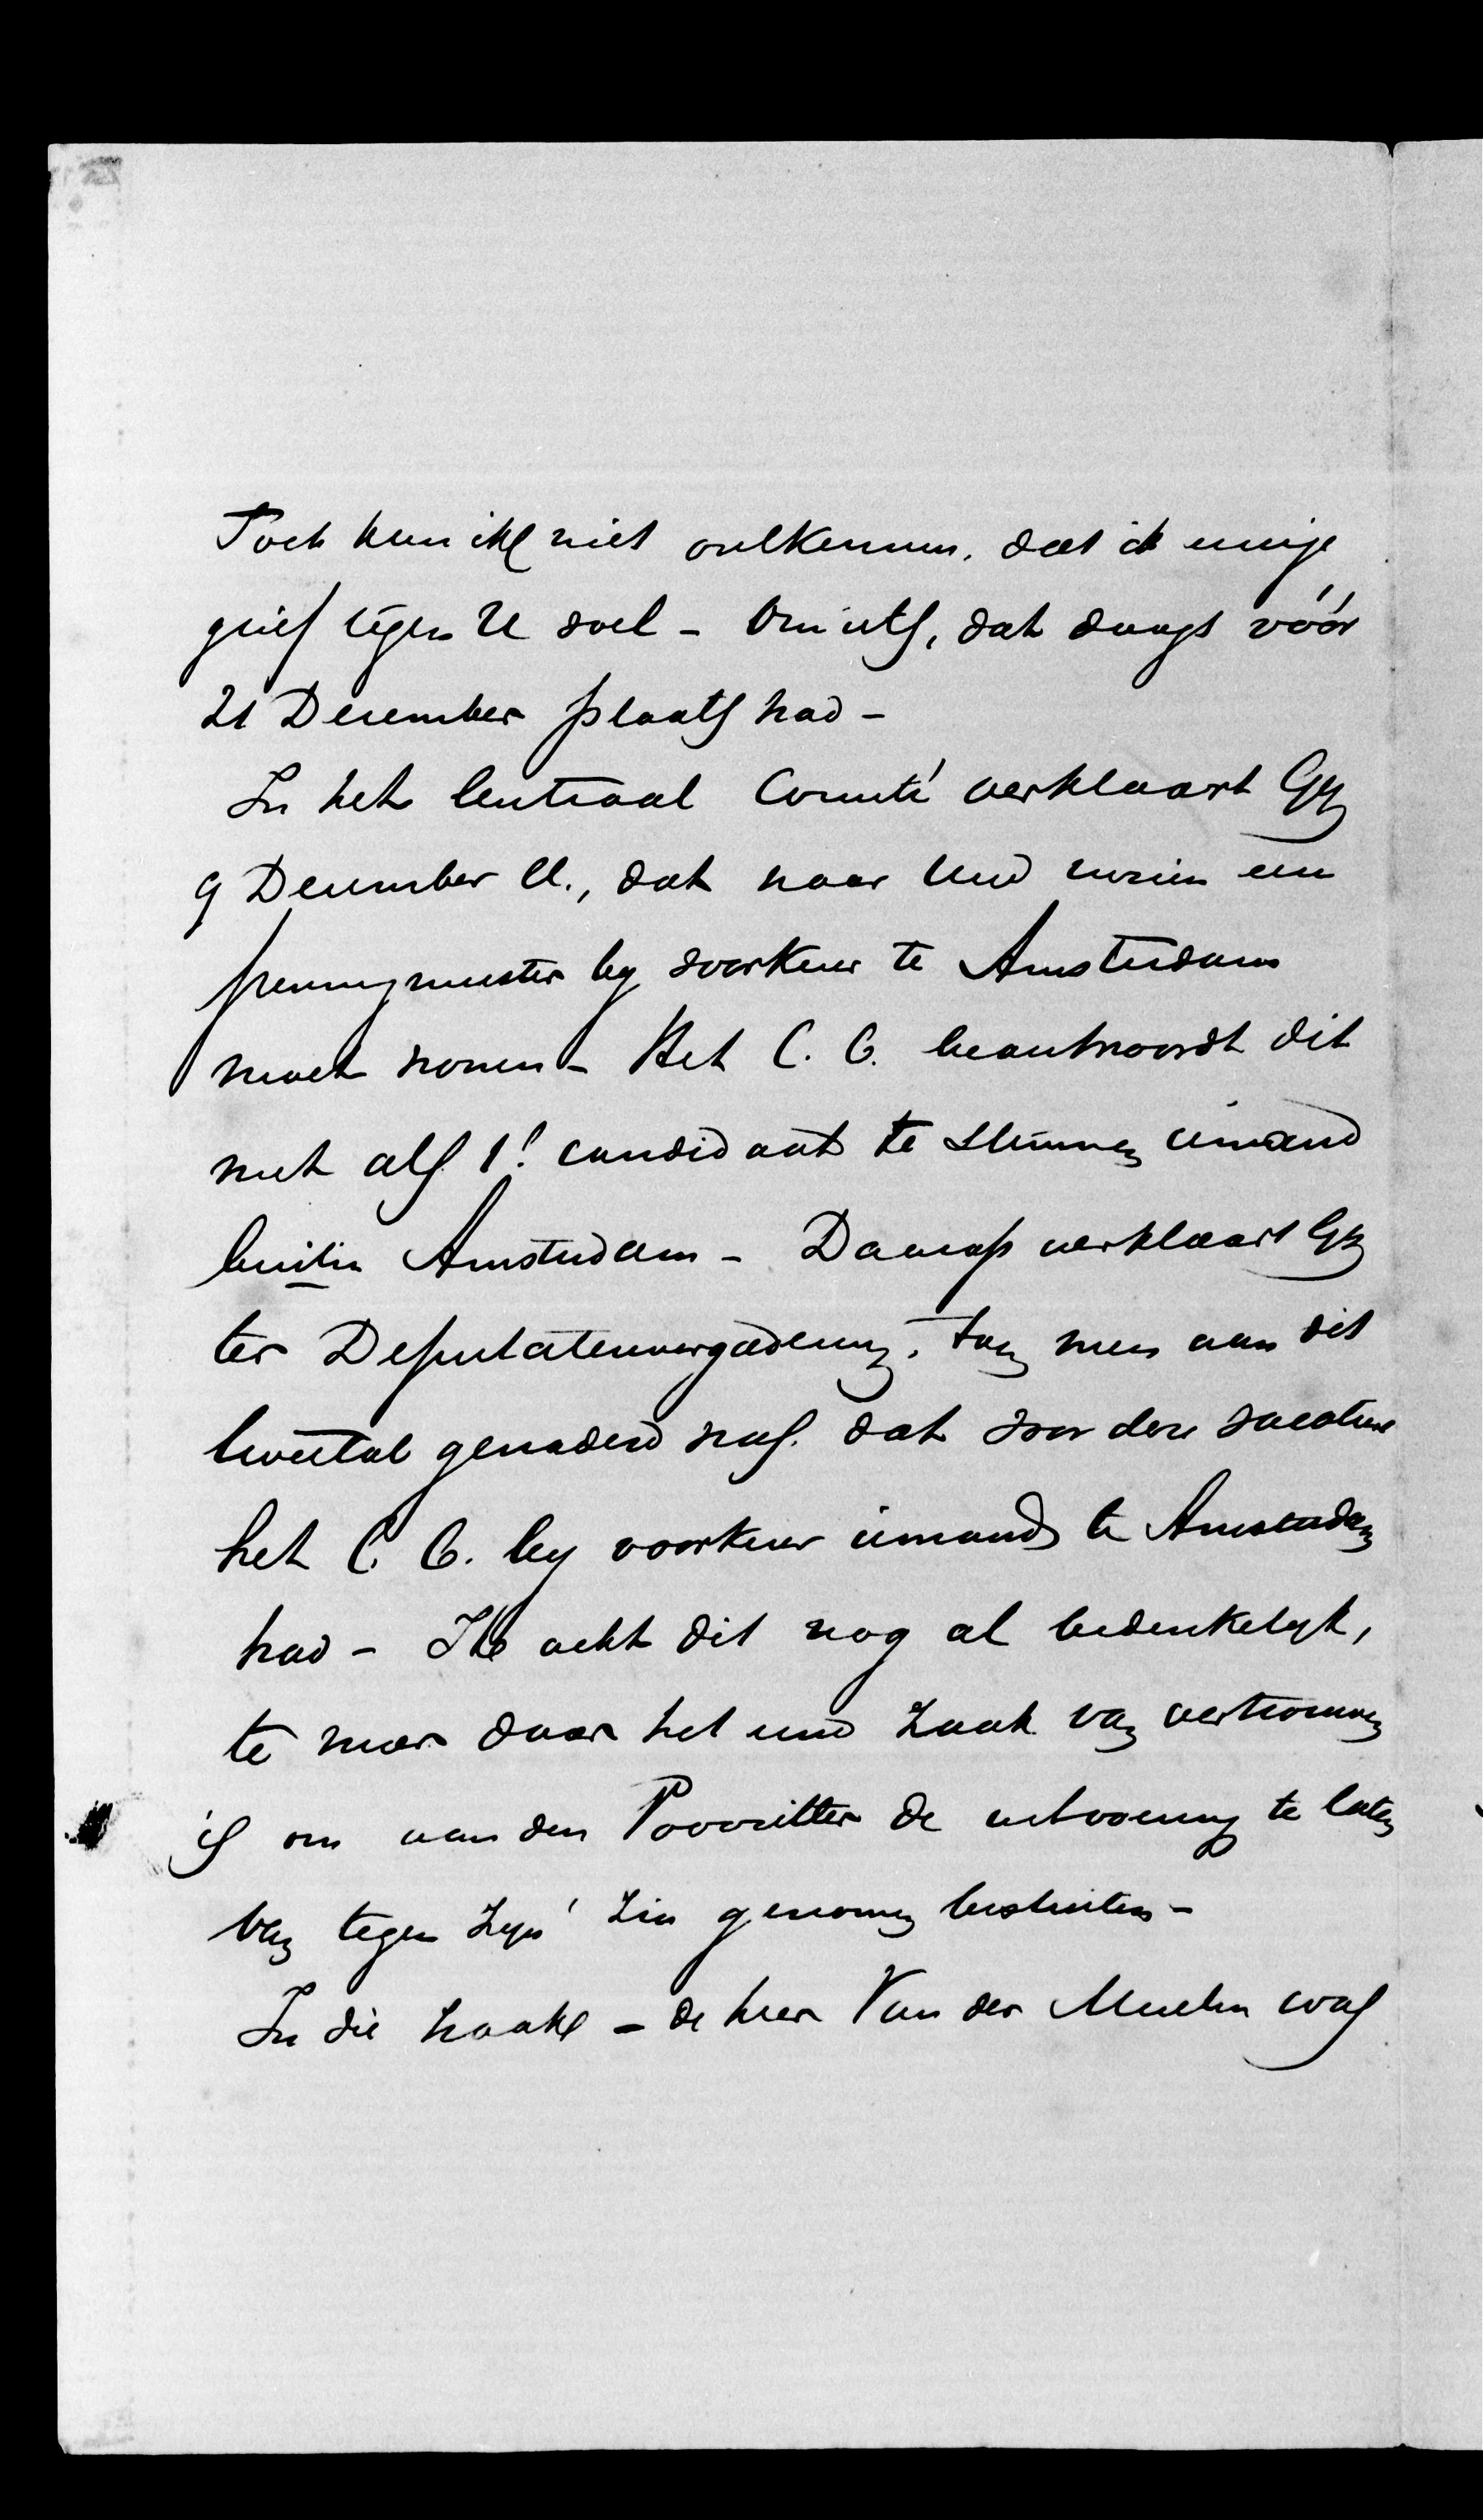 Toch kan ik niet ontkennen, dat ik eenige
grief tegen U voel - Om iets, dat daags vóór
21 December plaats had -
In het Centraal Comité verklaart Gy
9 December ll., dat naar Uwe meening een
penningmeester by voorkeur te Amsterdam
moet wonen - Het C. C. beantwoordt dit
met als 1e candidaat te stemmen iemand
buiten Amsterdam - Daarop verklaart Gy
ter Deputatenvergadering, toen men aan dit
tweetal genaderd was, dat voor deze vacature
het C. C. by voorkeur iemand te Amsterdam
had - Ik acht dit nog al bedenkelyk,
te meer daar het eene zaak van vertrouwen
is om aan den Voorzitter de uitvoering te laten
van tegen zyn zin genomen besluiten -
In die zaak - de heer Van der Meulen was